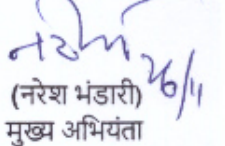 26/11
(नरेश भंडारी)
मुख्य अभियंता